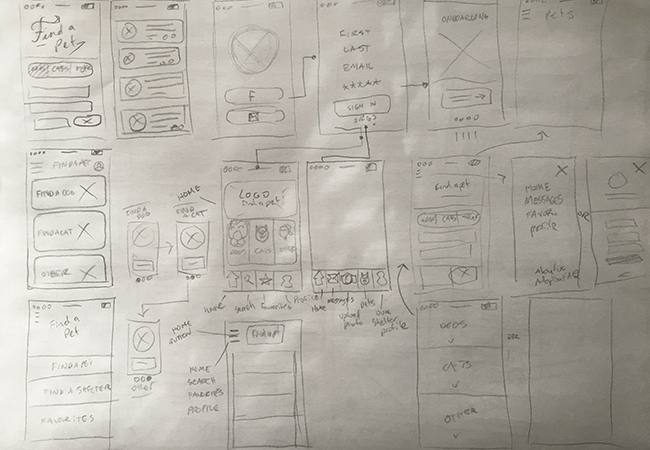 Find a
Pet
DOGS/CATS/MORE
F
FIRST
LAST
EMAIL
*****
SIGN IN
ONBOARDING
PETS
FINDAPET
FIND A DOG
FIND A CAT
OTHER
FIND A
DOG
HOME
FIND
A CAT
LOGO
find a pet
DOGS
CATS
OTHER
Home
search
favorites
PROFILE
Home
messages
upload
photo
pets
our
shelter
profile
find a pet
DOGS/CATS/MORE
HOME
MESSAGES
FAVOR
profile
OR
Find a
Pet
FIND A PET
FIND A SHELTER
FAVORITES
other
HOME
BUTTON
find a pet
HOME
SEARCH
FAVORITES
PROFILE
DOGS
CATS
OTHER
OR